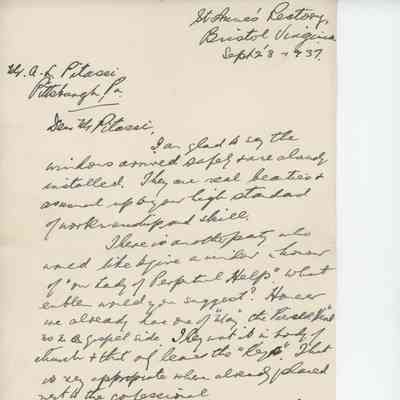 St Anne's Rectory,
Bristol Virginia
Sept 28 - 937.
Mr. A. L. Pitassi
Pittsburgh, Pa.
Dear Mr. Pitassi,
I am glad to say the
windows arrived safely & are already
installed. They are real beauties &
up to your high standard
of workmanship and skill.
There is another party who
would like to give a window in honor
of "Our Lady of Perpetual Help". What
emblem would you suggest? However
we already have one of the
on the gospel side. They want it in body of
church & that only leaves the "Keys". That
is very appropriate when already placed
next to the confessional